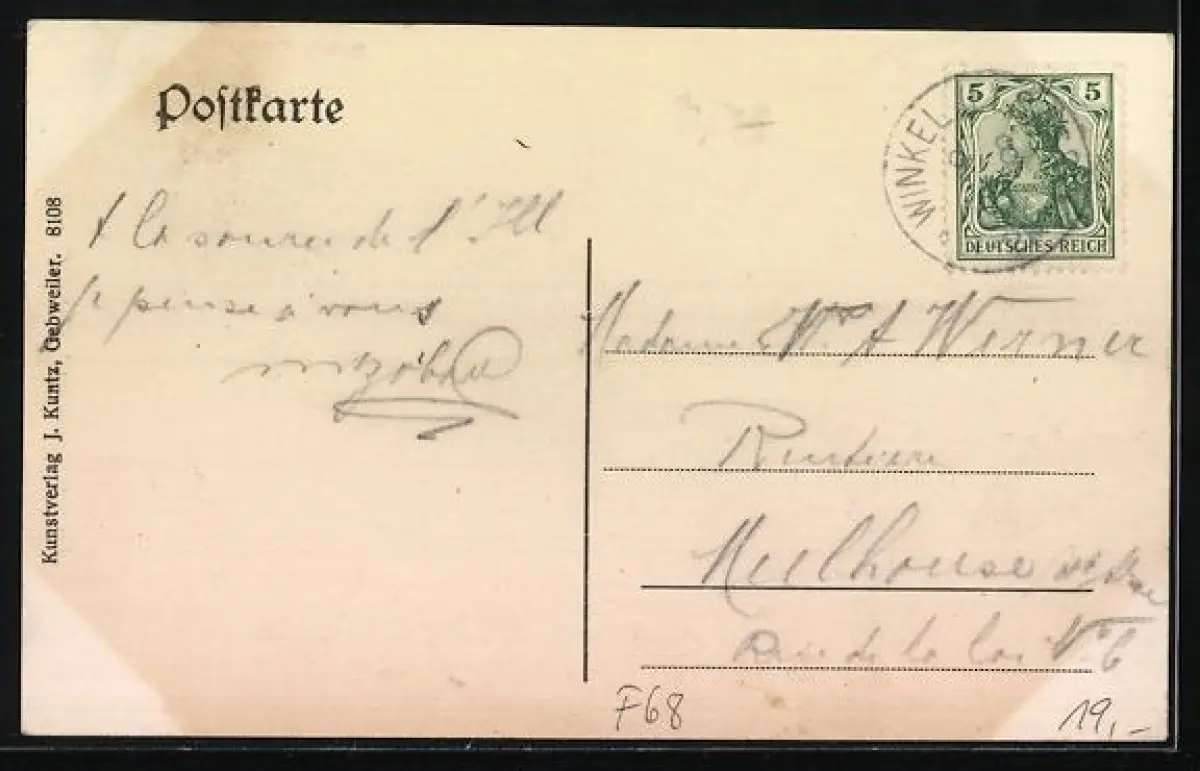 Postkarte
A la source de l'Ill
je pense à vous
WINKEL
5 5
DEUTSCHES REICH
Madame A Werner
Rentière
Mulhouse
Rue de la Loi N° 6
Kunstverlag J. Kuntz, Gebweiler. 8108
F68
19,-